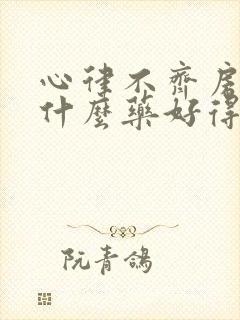 心律不齊房
什麼藥好得
阮青鴿